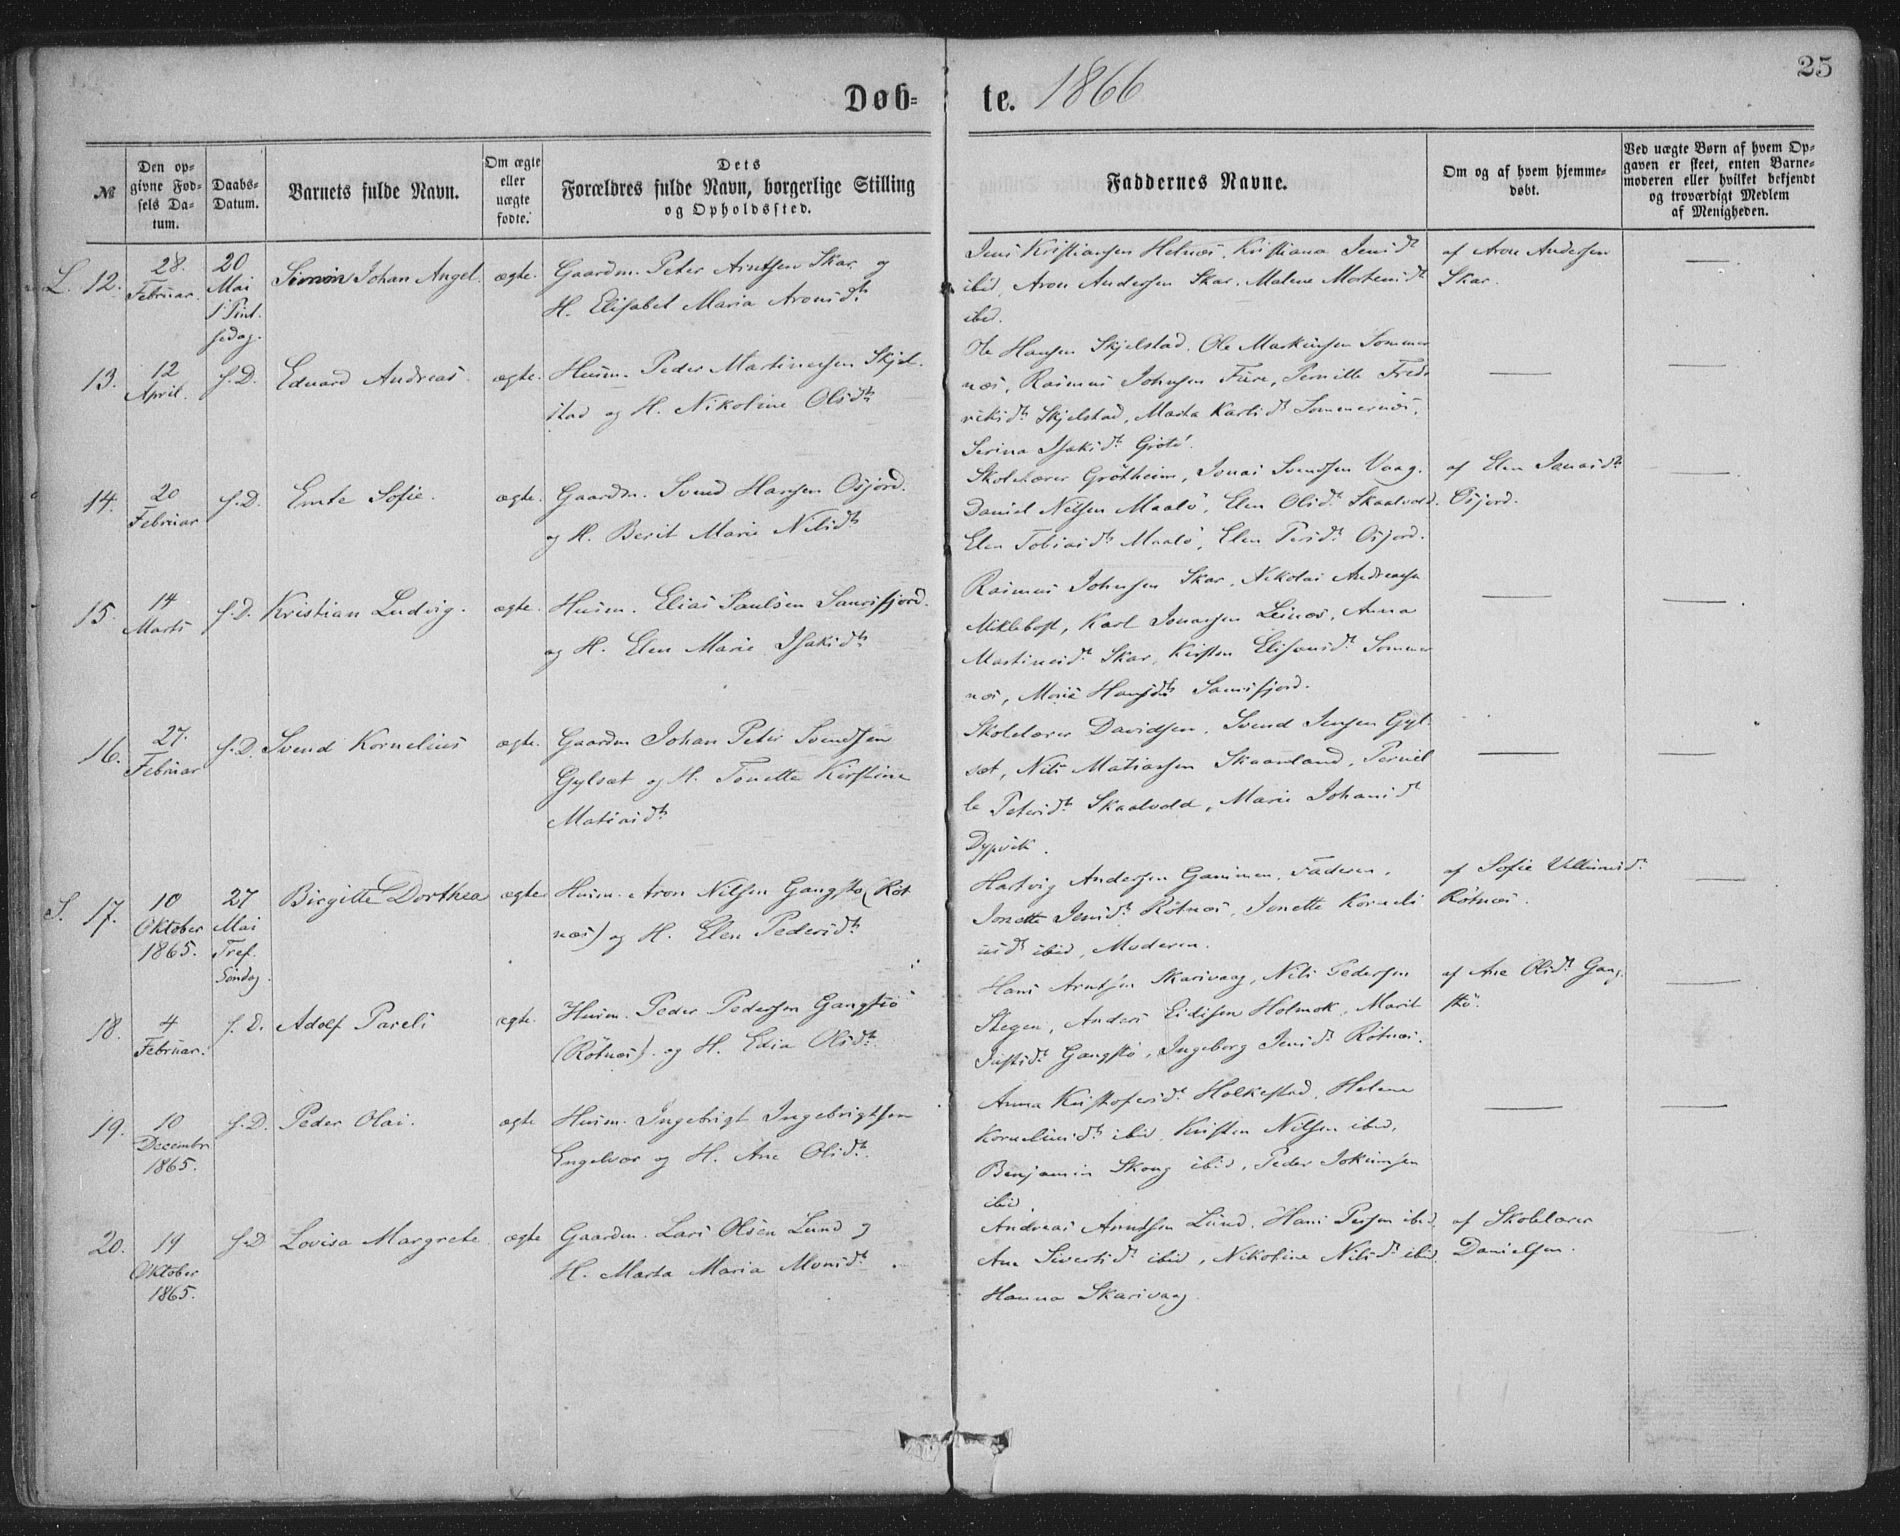 25
Døb- te. 1866
№
Den op-
givne Fød-
sels Da-
tum.
Daabs-
Datum.
Barnets fulde Navn.
Om ægte
eller
uægte
fødte.
Dets
Forældres fulde Navn, borgerlige Stilling
og Opholdssted.
Faddernes Navne.
Om og af hvem hjemme-
døbt.
Ved uægte Børn af hvem Op-
gaven er skeet, enten Barne-
moderen eller hvilket bekjendt
og troværdigt Medlem
af Menigheden.
L. 12. 28. Februar. 20 Mai 1 Pint. sedag. Simon Johan Angel. ægte.
Gaardm. Peter Arntsen Skar og
H. Elisabet Maria Aronsdtr
Jens Kristiansen Helnæs, Kristiana Jensdtr
ibid, Aron Andersen Skar, Malene Mortensdtr
ibid.
af Aron Andersen
Skar.
13. 12 April. s.D. Eduard Andreas. ægte.
Husm. Peder Martinussen Skjel-
stad og H. Nikoline Olsdtr
Ole Hansen Skjelstad. Ole Markussen Sommer
næs, Rasmus Johnsen Fure, Pernille Fred-
riksdtr Skjelstad, Marta Karlsdtr Sommernæs,
Serina Isaksdtr Grøtø.
14. 20 Februar s.D. Emte Sofie. ægte.
Gaardm. Svend Hansen Osjord.
og H. Berit Marie Nilsdtr
Skolelærer Grøtheim, Jonas Svendsen Vaag.
Daniel Nilsen Maalø, Elen Olsdtr Skaalvold.
Elen Tobiasdtr Maalø, Elen Persdtr Osjord.
af Elen Jonasdtr
Osjord.
15. 14 Marts s.D. Kristian Ludvig. ægte.
Husm. Elias Paulsen Saursfjord.
og H. Elen Marie Isaksdtr
Rasmus Johnsen Skar, Nikolai Andreasen
Miklebost, Karl Jonassen Leines, Anna
Martinusdtr Skar, Kirsten Elisæusdtr Sommer
næs, Marie Hansdtr Saursfjord.
16. 27. Februar s.D. Svend Kornelius ægte.
Gaardm Johan Peter Svendsen
Gylsæt og H. Tonette Kirstine
Matiasdtr
Skolelærer Davidsen, Svend Jensen Gyl-
sæt, Nils Matiassen Skaanland, Pernil
le Petersdtr Skaalvold, Marie Johansdtr
Dypvik.
S. 17. 10 Oktober 1865. 27 Mai Tref. Søndag. Birgitte Dorthea ægte
Husm. Aron Nilsen Gangstø (Røt
næs) og H. Elen Pedersdtr
Hartvig Andersen Gammen, Faderen,
Jonette Jensdtr Røtnæs, Jonette Korneli
usdtr ibid, Moderen.
af Sofie Villumsdtr
Røtnæs.
18. 4 Februar. s.D. Adolf Pareli ægte.
Husm. Peder Pedersen Gangstø
(Røtnæs). og H. Edia Olsdtr.
Hans Arntsen Skarsvaag, Nils Pedersen
Stegen, Anders Eidisen Holmok, Marit
Justsdtr Gangstø, Ingeborg Jensdtr Røtnæs.
af Ane Olsdtr Gang-
stø.
19. 10 Decembr 1865. s.D. Peder Olai. ægte
Husm. Ingebrigt Ingebrigtsen
Engelvær og H. Ane Olsdtr.
Anna Kristofersdtr Holkestad, Helene
Korneliusdtr ibid, Kristen Nilsen ibid,
Benjamin Skong ibid, Peder Jokumsen
ibid.
20. 19 Oktober 1865. s.D. Lovisa Margrete ægte
Gaardm. Lars Olsen Lund og
H. Marta Maria Monsdtr.
Andreas Arntsen Lund, Hans Persen ibid,
Ane Sivertsdtr ibid, Nikoline Nilsdtr ibid.
Hanna Skarsvaag.
af Skolelærer
Danielsen.